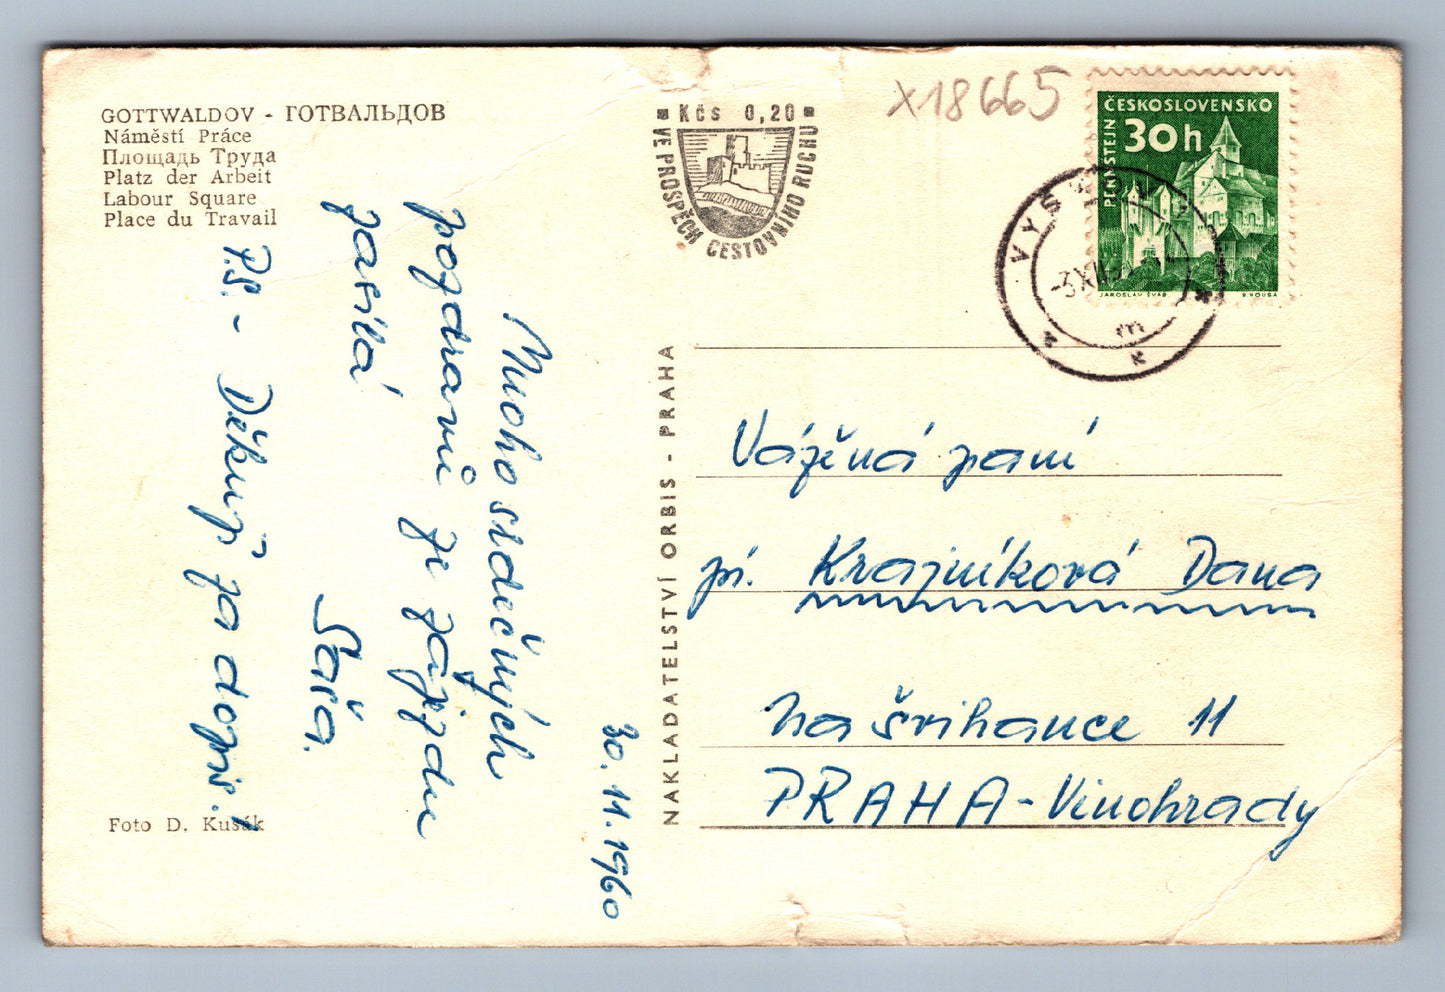 GOTTWALDOV - ГОТВАЛЬДОВ
Náměstí Práce
Площадь Труда
Platz der Arbeit
Labour Square
Place du Travail
30.11.1960
Mnoho srdečných
pozdravů ze zájezdu
zasílá
Saša.
P.S. - Děkuji za dopis.!
Foto D. Kusák
NAKLADATELSTVÍ ORBIS - PRAHA
Kčs 0,20
VE PROSPĚCH CESTOVNÍHO RUCHU
X18665
ČESKOSLOVENSKO
30h
PERNŠTEJN
JAROSLAV ŠVÁB
Vážená paní
pí. Krajníková Dana
Na Švihance 11
PRAHA - Vinohrady